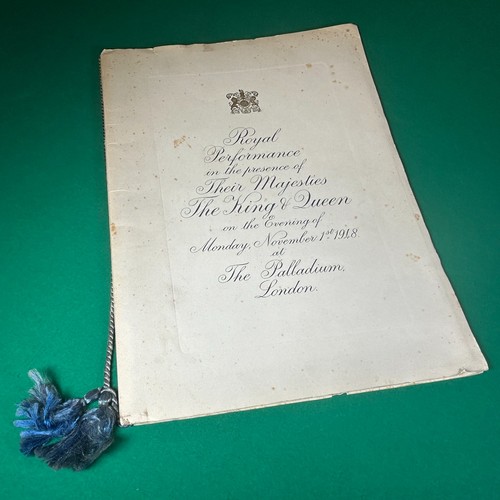 Royal
Performance
in the presence of
Their Majesties
The King & Queen
on the Evening of
Monday, November 1st 1948.
at
The Palladium,
London.